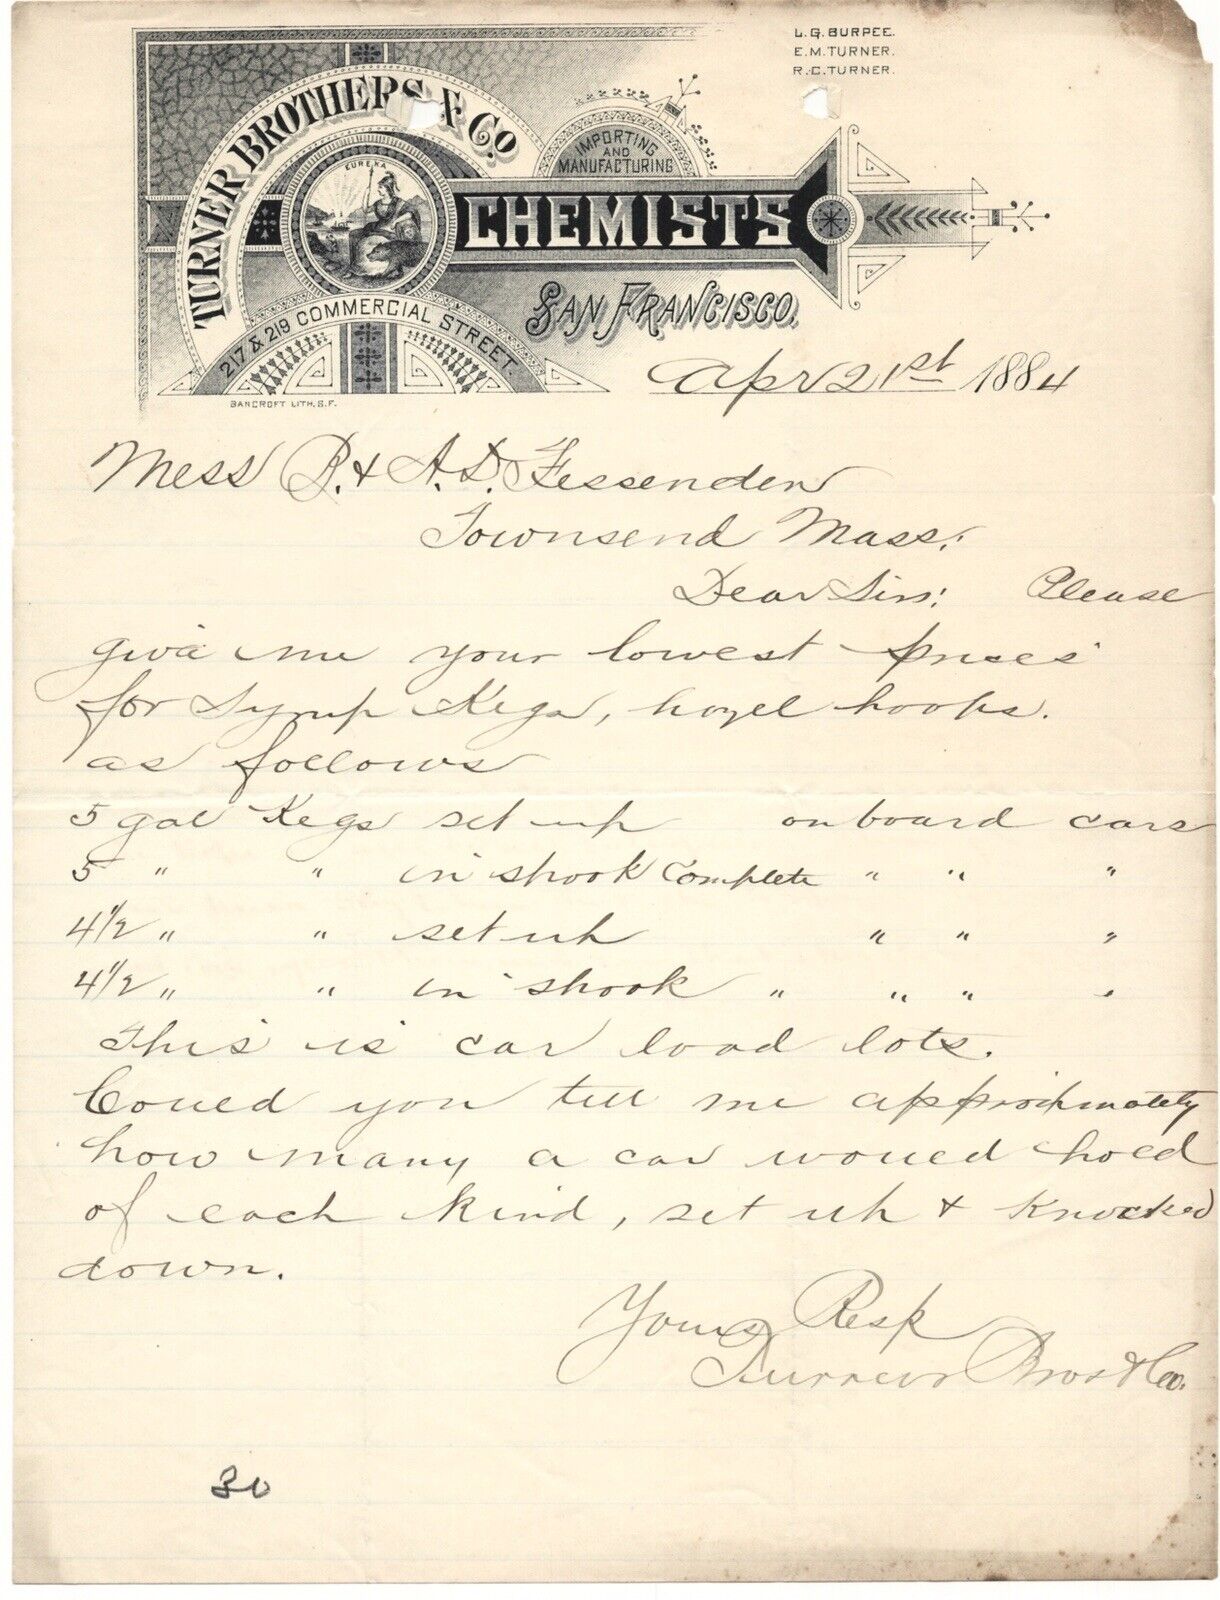 L.G. BURPEE.
E.M. TURNER.
R.C. TURNER.
TURNER BROTHERS & Co
IMPORTING
AND
MANUFACTURING
EUREKA
CHEMISTS
SAN FRANCISCO.
217 & 219 COMMERCIAL STREET.
BANCROFT LITH. S.F.
Apr 21st 1884
Mess B. & A.D. Fessenden
Townsend Mass.
Dear Sirs: Please
give me your lowest prises
for Syrup Kegs, hazel hoops.
as follows
5 gal Kegs set up on board cars
5 " " in shook Complete " " "
4 1/2 " " set up " " "
4 1/2 " " in shook " " " "
This is car load lots.
Could you tell me approximately
how many a car would hold
of each kind, set up & Knocked
down.
Yours Resp
Turner Bros & Co.
30